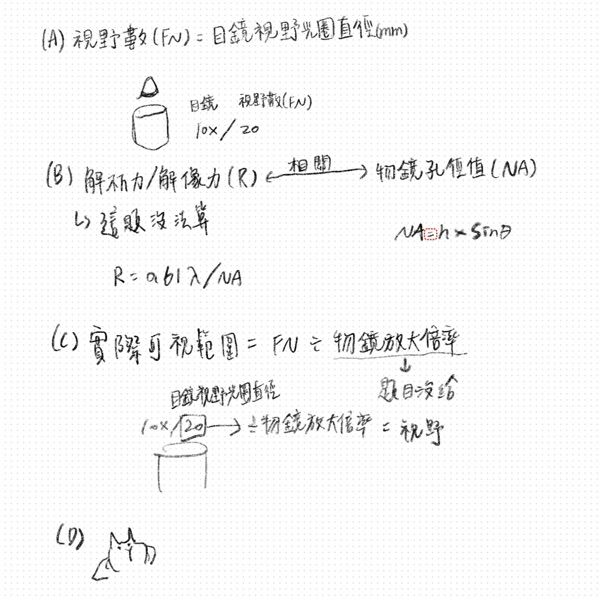 (A) 視野數(FN) = 目鏡視野光圈直徑(mm)
目鏡 視野數(FN)
10x/20
(B) 解析力/解像力(R) ←相關→ 物鏡孔徑值(NA)
↳ 這題沒法算
NA=n×sinθ
R = 0.61λ/NA
(C) 實際可視範圍 = FN ÷ 物鏡放大倍率
↓
題目沒給
目鏡視野光圈直徑
10x/20 → ÷物鏡放大倍率 = 視野
(D)